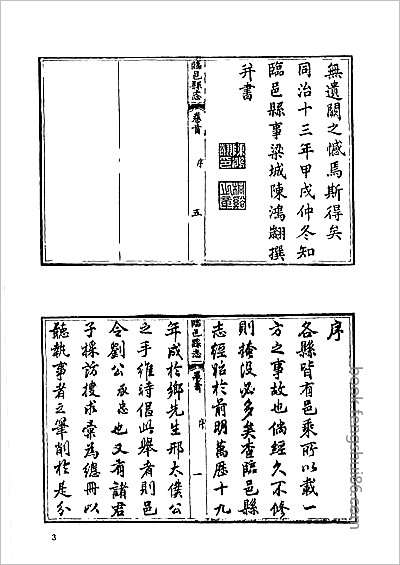 無遺闕之憾焉斯得矣
同治十三年甲戌仲冬知
臨邑縣事梁城陳鴻翽撰
并書
臨邑縣志
卷首
序
五
序
各縣皆有邑乘所以載一
方之事故也倘經久不修
則掩沒必多矣查臨邑縣
志經始於前明萬歷十九
臨邑縣志
卷首
序
一
年成於鄉先生邢太僕公
之手維時倡此舉者則邑
令劉公承忠也又有諸君
子採訪搜求彙為總冊以
聽執事者之筆削於是分
3